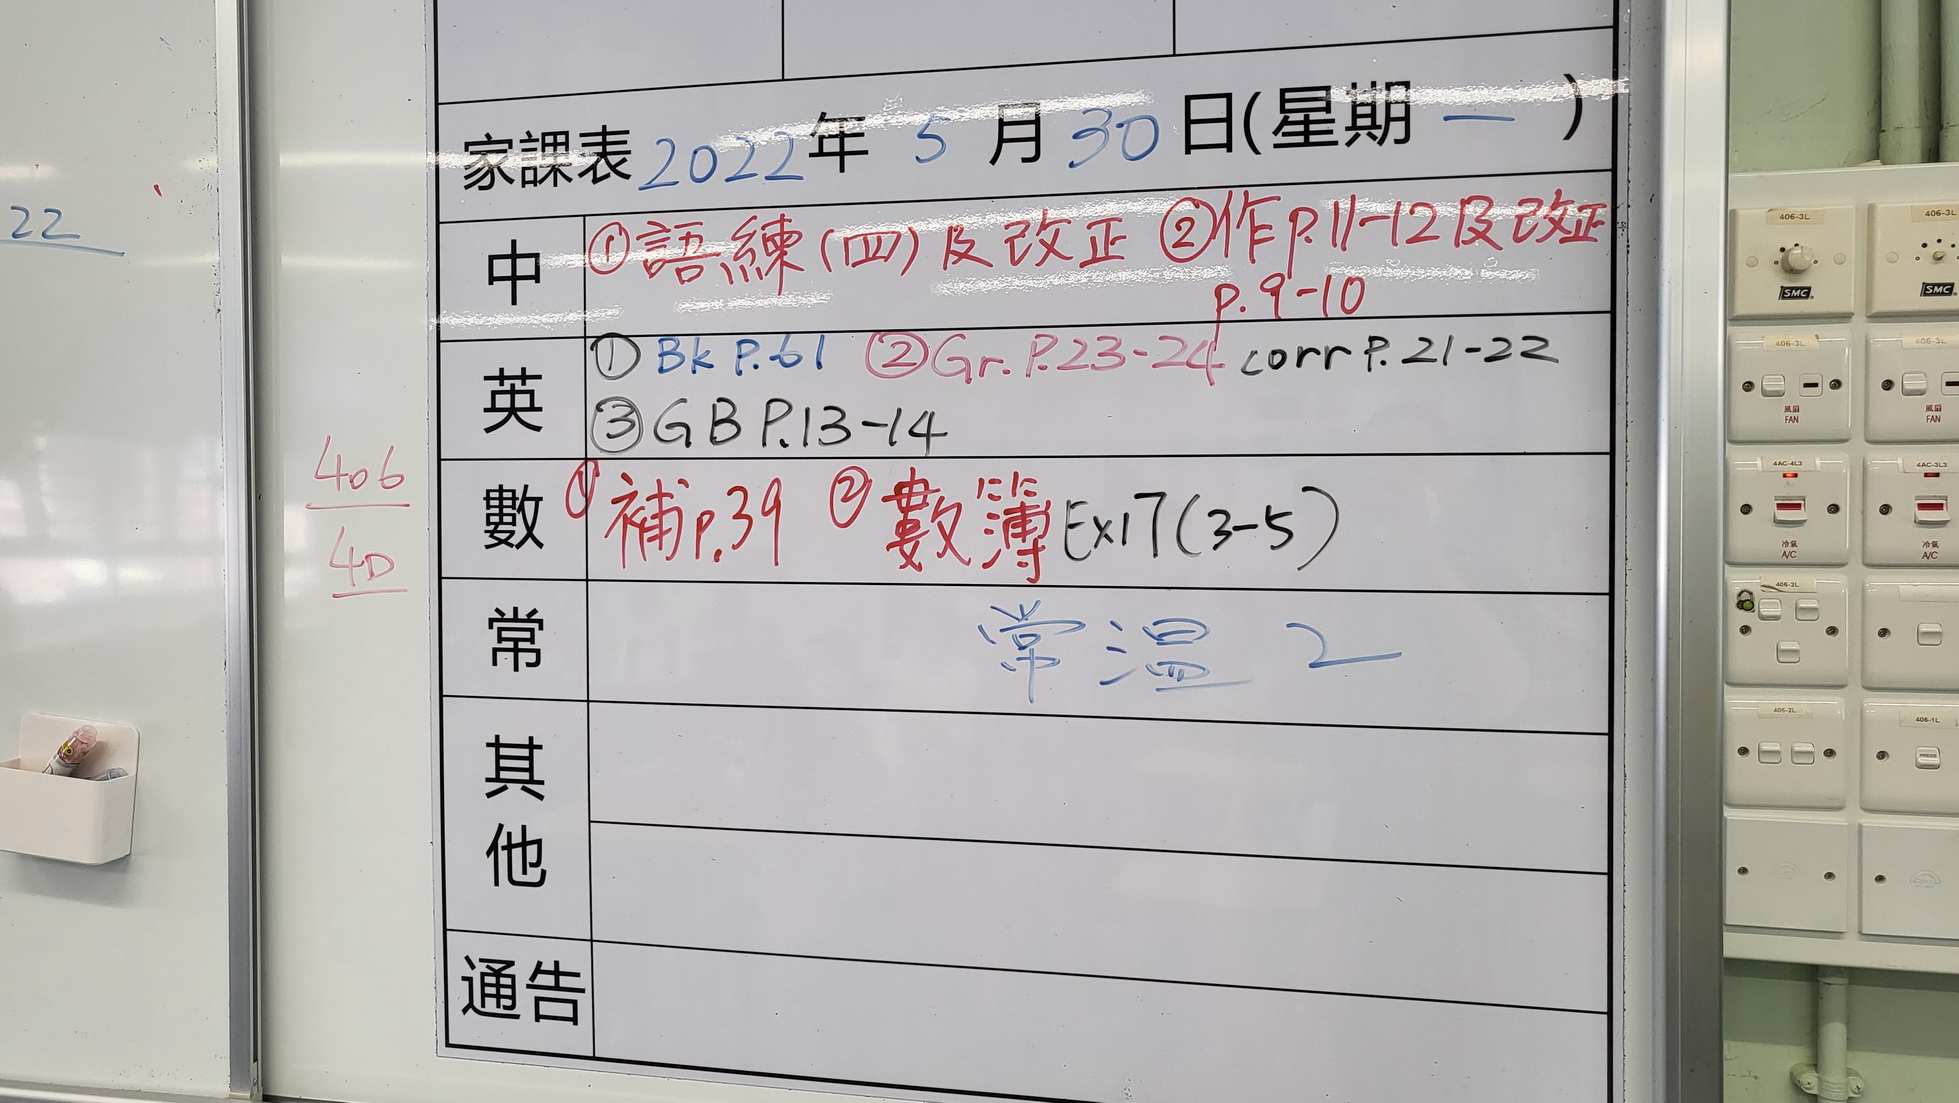 22
406
4D
家課表 2022年 5月30日(星期一)
中 ①語練(四)及改正 ②作P.11-12及改正
p.9-10
英 ① Bk P.61 ②Gr.P.23-24 corr P.21-22
③GB P.13-14
數 ①補p.39 ②數簿Ex17(3-5)
常 常溫 2
其他
通告
406-3L
406-3L
SMC
SMC
406-3L
406-3L
風扇
FAN
風扇
FAN
4AC-4L3
4AC-3L3
冷氣
A/C
冷氣
A/C
406-2L
406-2L
406-1L
PRESS